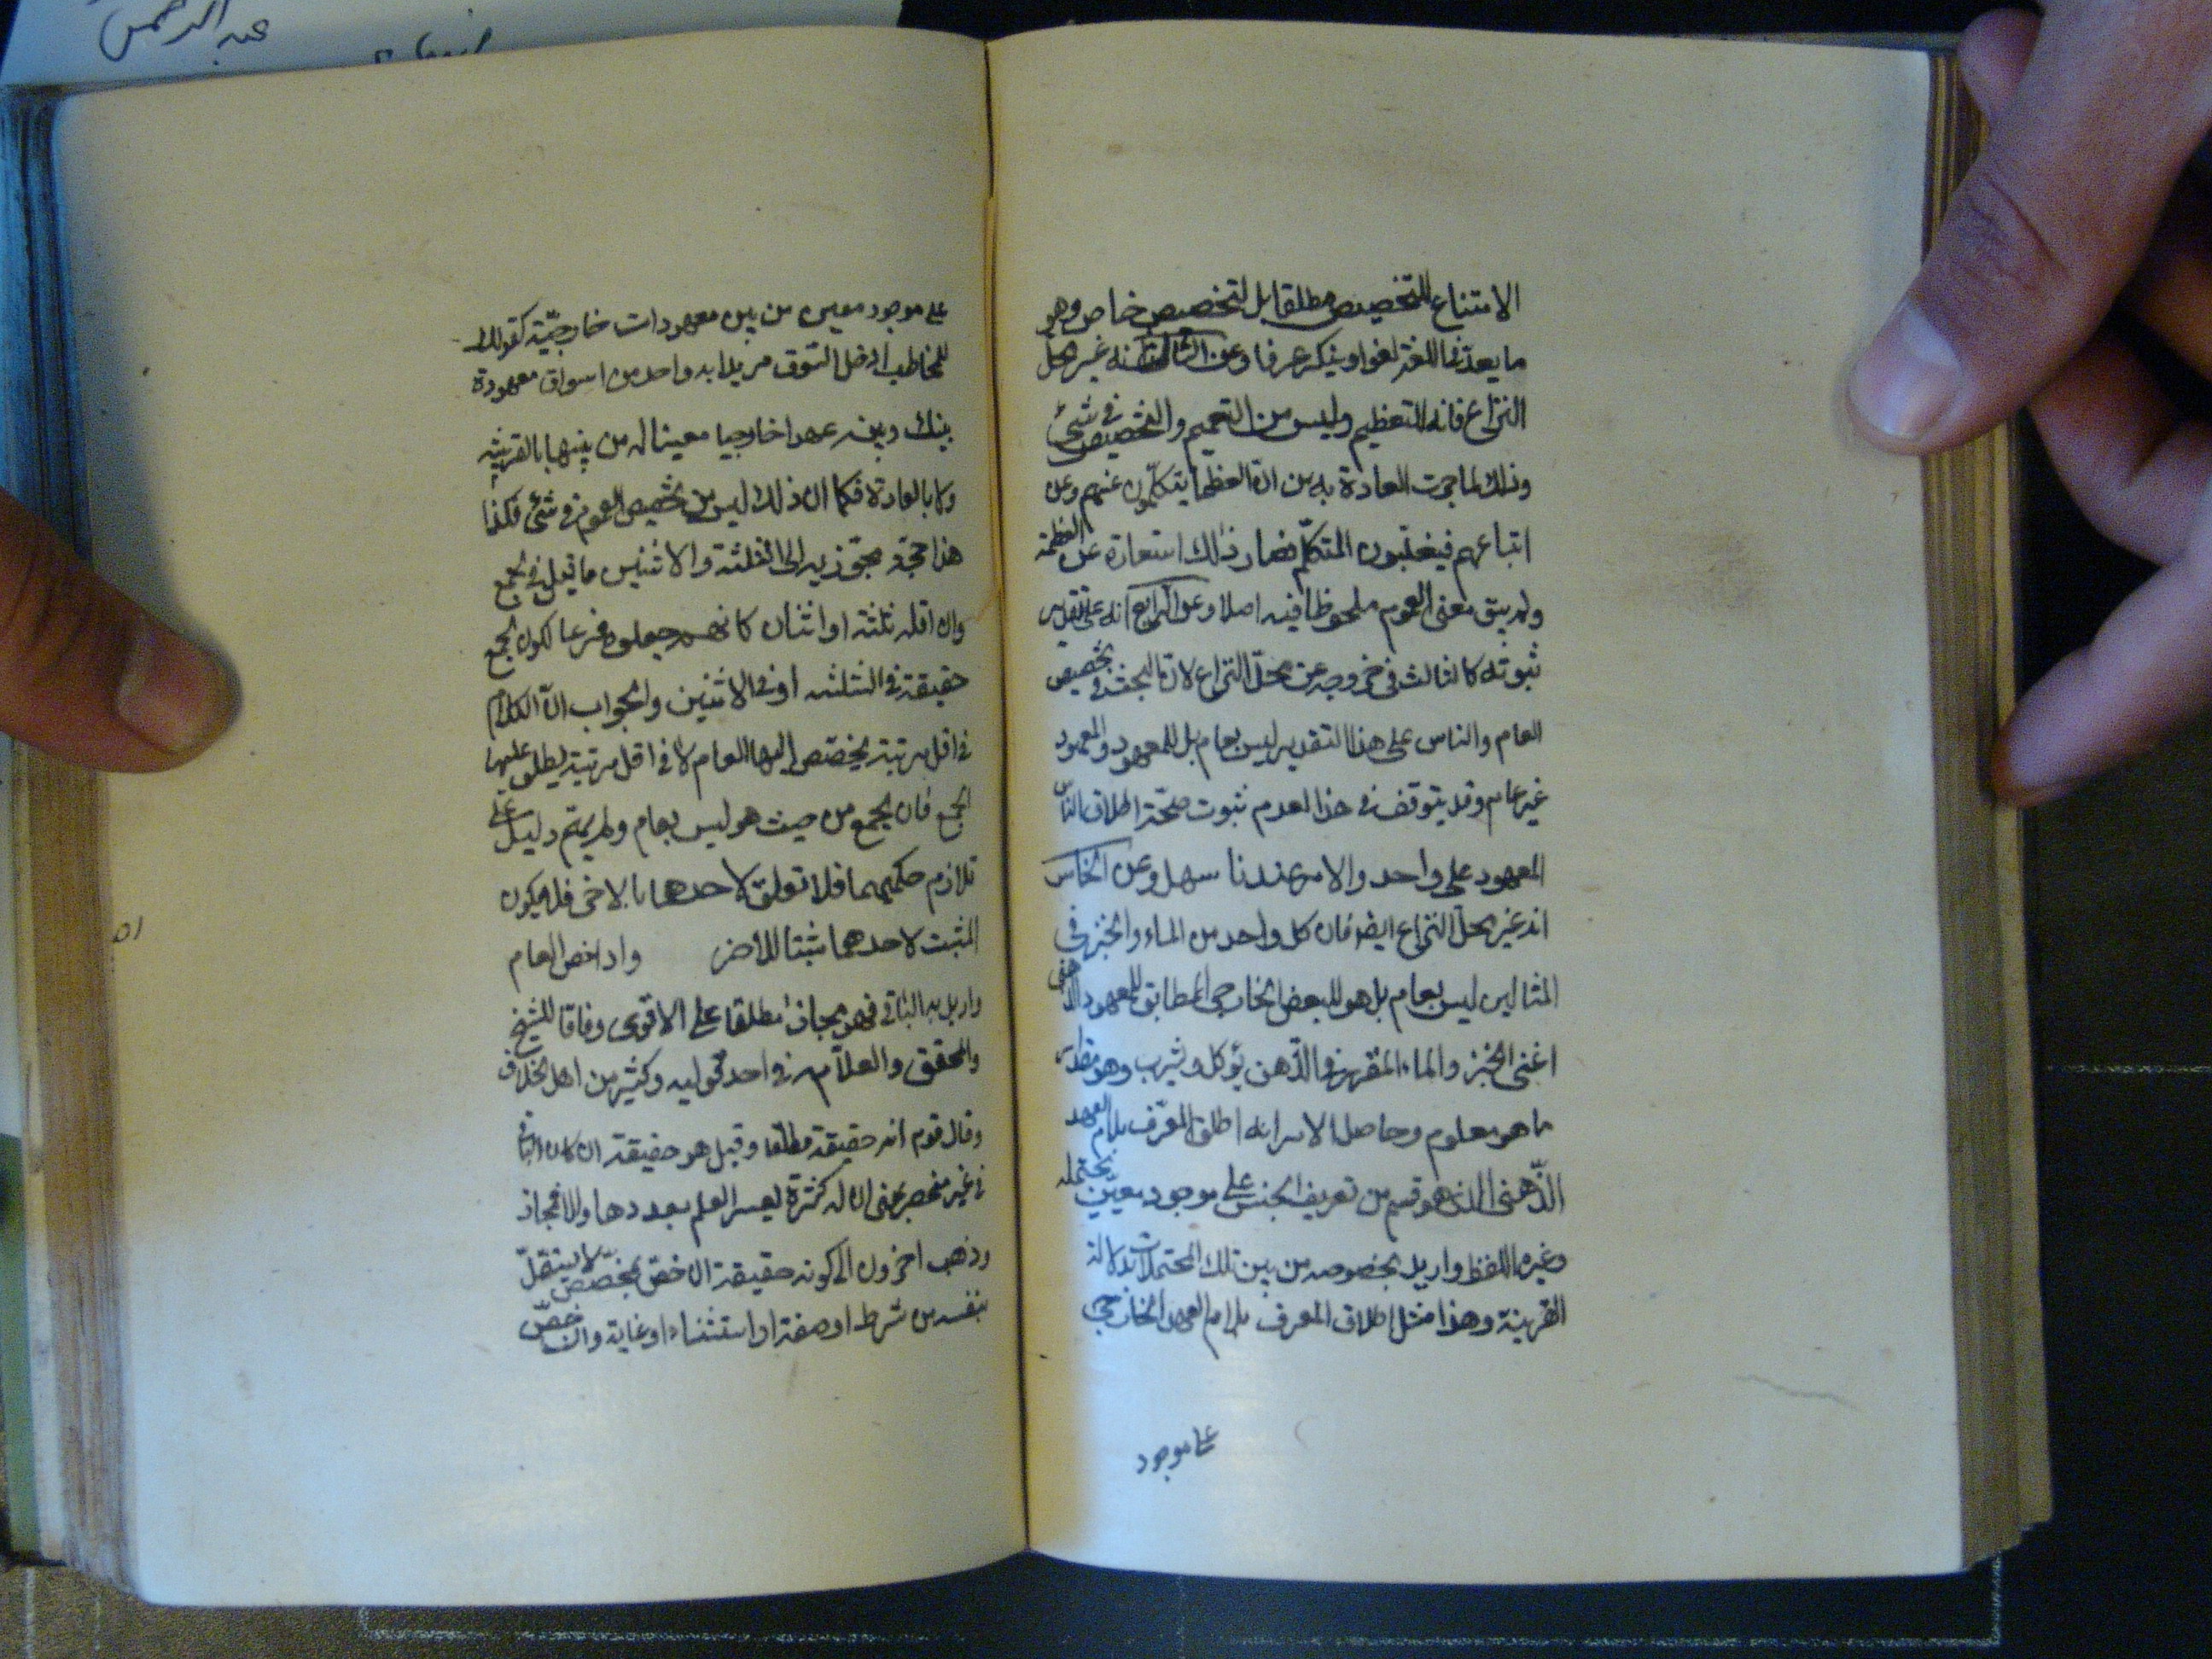 الامتناع للتخصيص مطلقا بل لتخصيص خاص وهو
ما يعد في اللغة لغوا وينكر عرفا وعن الثالث انه غير محل
النزاع فانه للتعظيم وليس من التعميم والتخصيص في شئ
وذلك لما جرت العادة به من انّ العظماء يتكلّمون عنهم وعن
اتباعهم فيغلبون المتكلّم فصار ذلك استعارة عن العظمة
ولم يبق معنى العموم ملحوظا فيه اصلا وعن الرابع انه على تقدير
ثبوته كالثالث في خروجه عن محلّ النزاع لانّ البحث في تخصيص
العام والناس على هذا التقدير ليس بعام بل للمعهود والمعهود
غير عام وقد يتوقف في هذا لعدم ثبوت صحّة اطلاق الناس
المعهود على واحد والامر عندنا سهل وعن الخامس
انه غير محلّ النزاع ايضا فان كل واحد من الماء والخبز في
المثالين ليس بعام بل هو للبعض الخارجي المطابق للمعهود الذهني
اعني الخبز والماء المقرر في الذّهن يؤكل ويشرب وهو مقدار
ما هو معلوم وحاصل الامر انه اطلق المعرّف بلام العهد
الذّهني الذي هو قسم من تعريف الجنس على موجود معيّن يحتمله
وغيره اللفظ واريد بخصوصه من بين تلك المحتملات بدلالة
القرينة وهذا مثل اطلاق المعرف بلام العهد الخارجي
على موجود
على موجود معين من بين معهودات خارجيّة كقولك
للمخاطب ادخل السّوق مريدا به واحد من اسواق معهودة
بينك وبينه عهدا خارجيا معينا له من بينها بالقرينة
ولا بالعادة فكما ان ذلك ليس من تخصيص العموم في شئ فكذا
هذا حجّة مجوّزيه الى الثلثة والاثنين ما قيل في الجمع
وان اقله ثلثة او اثنان كانهم جعلوه فرعا لكون الجمع
حقيقة في الثلثة أو في الاثنين والجواب انّ الكلام
في اقل مرتبة يخصّص اليها العام لا في اقل مرتبة يطلق عليها
الجمع فان الجمع من حيث هو ليس بعام ولم يقم دليل على
تلازم حكمهما فلا تعلق لاحدهما بالاخر فلا يكون
المثبت لاحدهما مثبتا للأخر واذا خص العام
واريد به الباقي فهو مجاز مطلقا على الاقوى وفاقا للشيخ
والمحقق والعلاّمة في احد قوليه وكثير من اهل الخلاف
وقال قوم انه حقيقة مطلقا وقيل هو حقيقة ان كان الباقي
في غير منحصر بمعنى ان له كثرة يعسر العلم بعددها والا فمجاز
وذهب اخرون الى كونه حقيقة ان خصّ بمخصّص لا يستقلّ
بنفسه من شرط او صفة او استثناء او غاية وان خصّ
٥١
عبد الرحمن